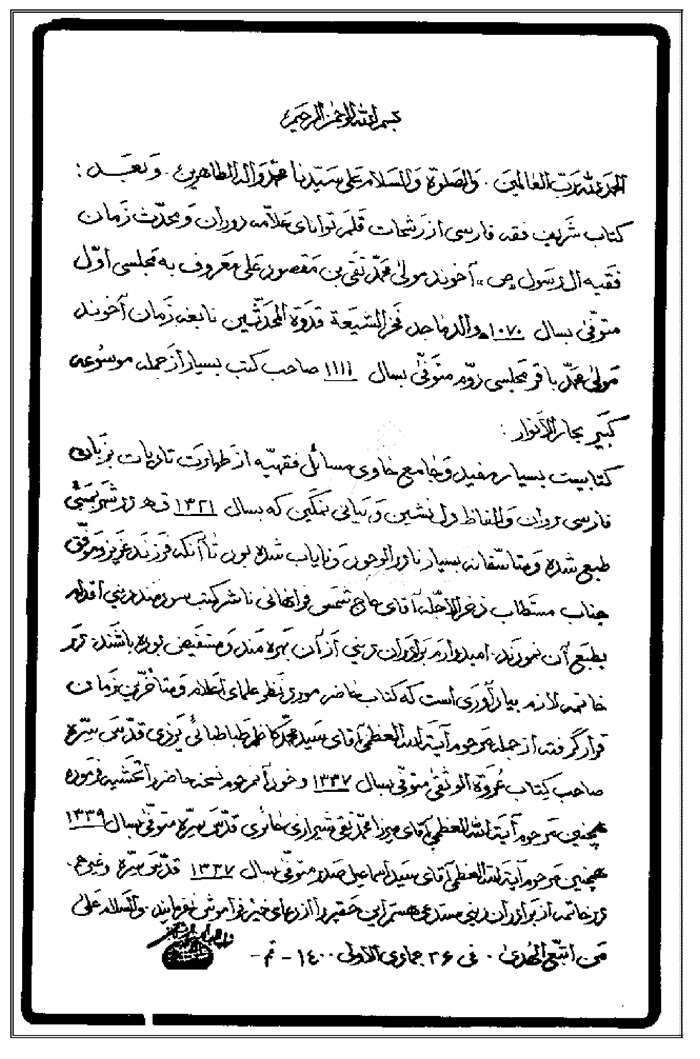 بسم الله الرحمن الرحیم
الحمد لله رب العالمین. والصلوة والسلام علی سیدنا محمد وآله الطاهرین. وبعد:
کتاب شریف فقه فارسی از رشحات قلم توانای علامه دوران و محدث زمان
فقیه آل رسول ص، آخوند مولی محمد تقی بن مقصود علی معروف به مجلسی اول
متوفی بسال ۱۰۷۰ والد ماجد فخر الشیعة قدوة المحدثین نابغه زمان آخوند
مولی محمد باقر مجلسی دوم متوفی بسال ۱۱۱۱ صاحب کتب بسیار از جمله موسوعه
کبیر بحار الانوار:
کتابیست بسیار مفید و جامع حاوی مسائل فقهیه از طهارت تا دیات بزبان
فارسی روان والفاظ دل نشین و بیانی نمکین که بسال ۱۳۲۱ ق ه در شهر بمبئی
طبع شده و متأسفانه بسیار نادر الوجود و نایاب شده بود تا آنکه فرزند عزیز و موفق
جناب مستطاب ذخر الاجله آقای حاج شمس فراهانی ناشر کتب سودمند دینی اقدام
بطبع آن نمودند. امیدوارم برادران دینی از آن بهره مند و مستفیض بوده باشند. در
خاتمه لازم بیادآوری است که کتاب حاضر مورد نظر علمای اعلام و متأخرین زمان
قرار گرفته از جمله مرحوم آیة الله العظمی آقای سید محمد کاظم طباطبائی یزدی قدس سره
صاحب کتاب عروة الوثقی متوفی بسال ۱۳۳۷ و خود آنمرحوم نسخه حاضر را تحشیه فرموده
همچنین مرحوم آیة الله العظمی آقای میرزا محمد تقی شیرازی حائری قدس سره متوفی بسال ۱۳۳۹
همچنین مرحوم آیة الله العظمی آقای سید اسماعیل صدر متوفی بسال ۱۳۳۷ قدس سره وغیرهم.
در خاتمه از برادران دینی مستدعی هستم این حقیر را از دعای خیر فراموش نفرمایند. والسلام علی
من اتبع الهدی. فی ۲۶ جمادی الاولی ۱۴۰۰ - قم -